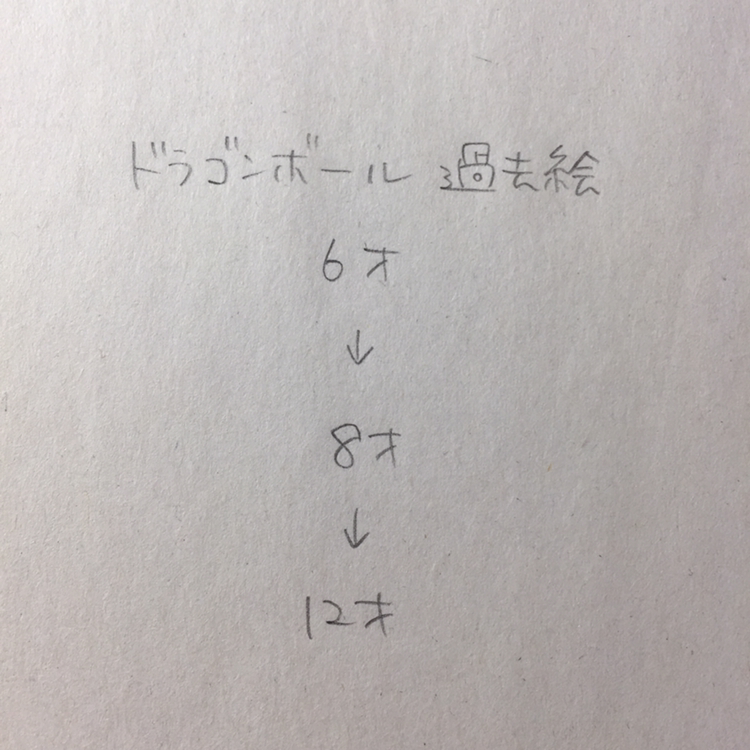 ドラゴンボール 過去絵
6才
↓
8才
↓
12才